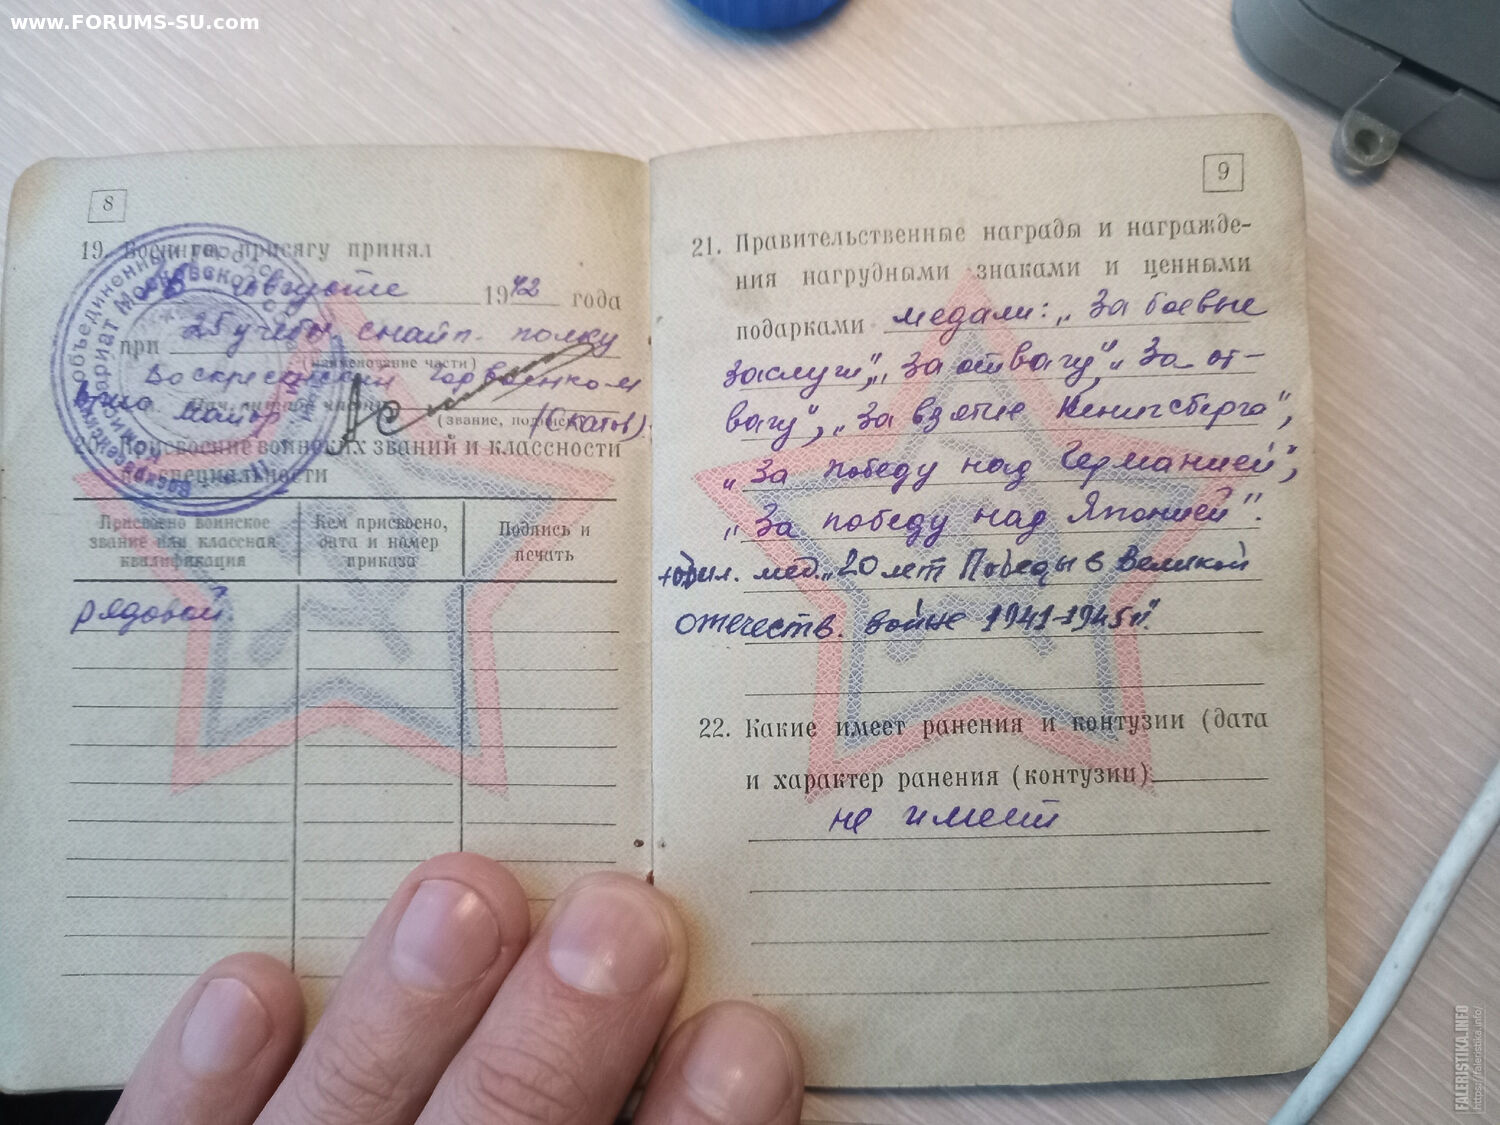 www.FORUMS-SU.com
8
19. Военную присягу принял
августе 1942 года
при 25 учебн. снайп. полку
(наименование части)
Воскресенский Горвоенком
майор (Скатов)
(звание, подпись)
20. Присвоение воинских званий и классности
по специальности
Присвоено воинское звание или классная квалификация
Кем присвоено, дата и номер приказа
Подпись и печать
рядовой.
9
21. Правительственные награды и награжде-
ния нагрудными знаками и ценными
подарками медали: „За боевые
заслуги", „За отвагу", „За от-
вагу", „За взятие Кенигсберга",
„За победу над Германией",
„За победу над Японией".
юбил. мед. „20 лет Победы в Великой
отечеств. войне 1941-1945гг."
22. Какие имеет ранения и контузии (дата
и характер ранения (контузии)
не имеет
FALERISTIKA.INFO
https://faleristika.info/